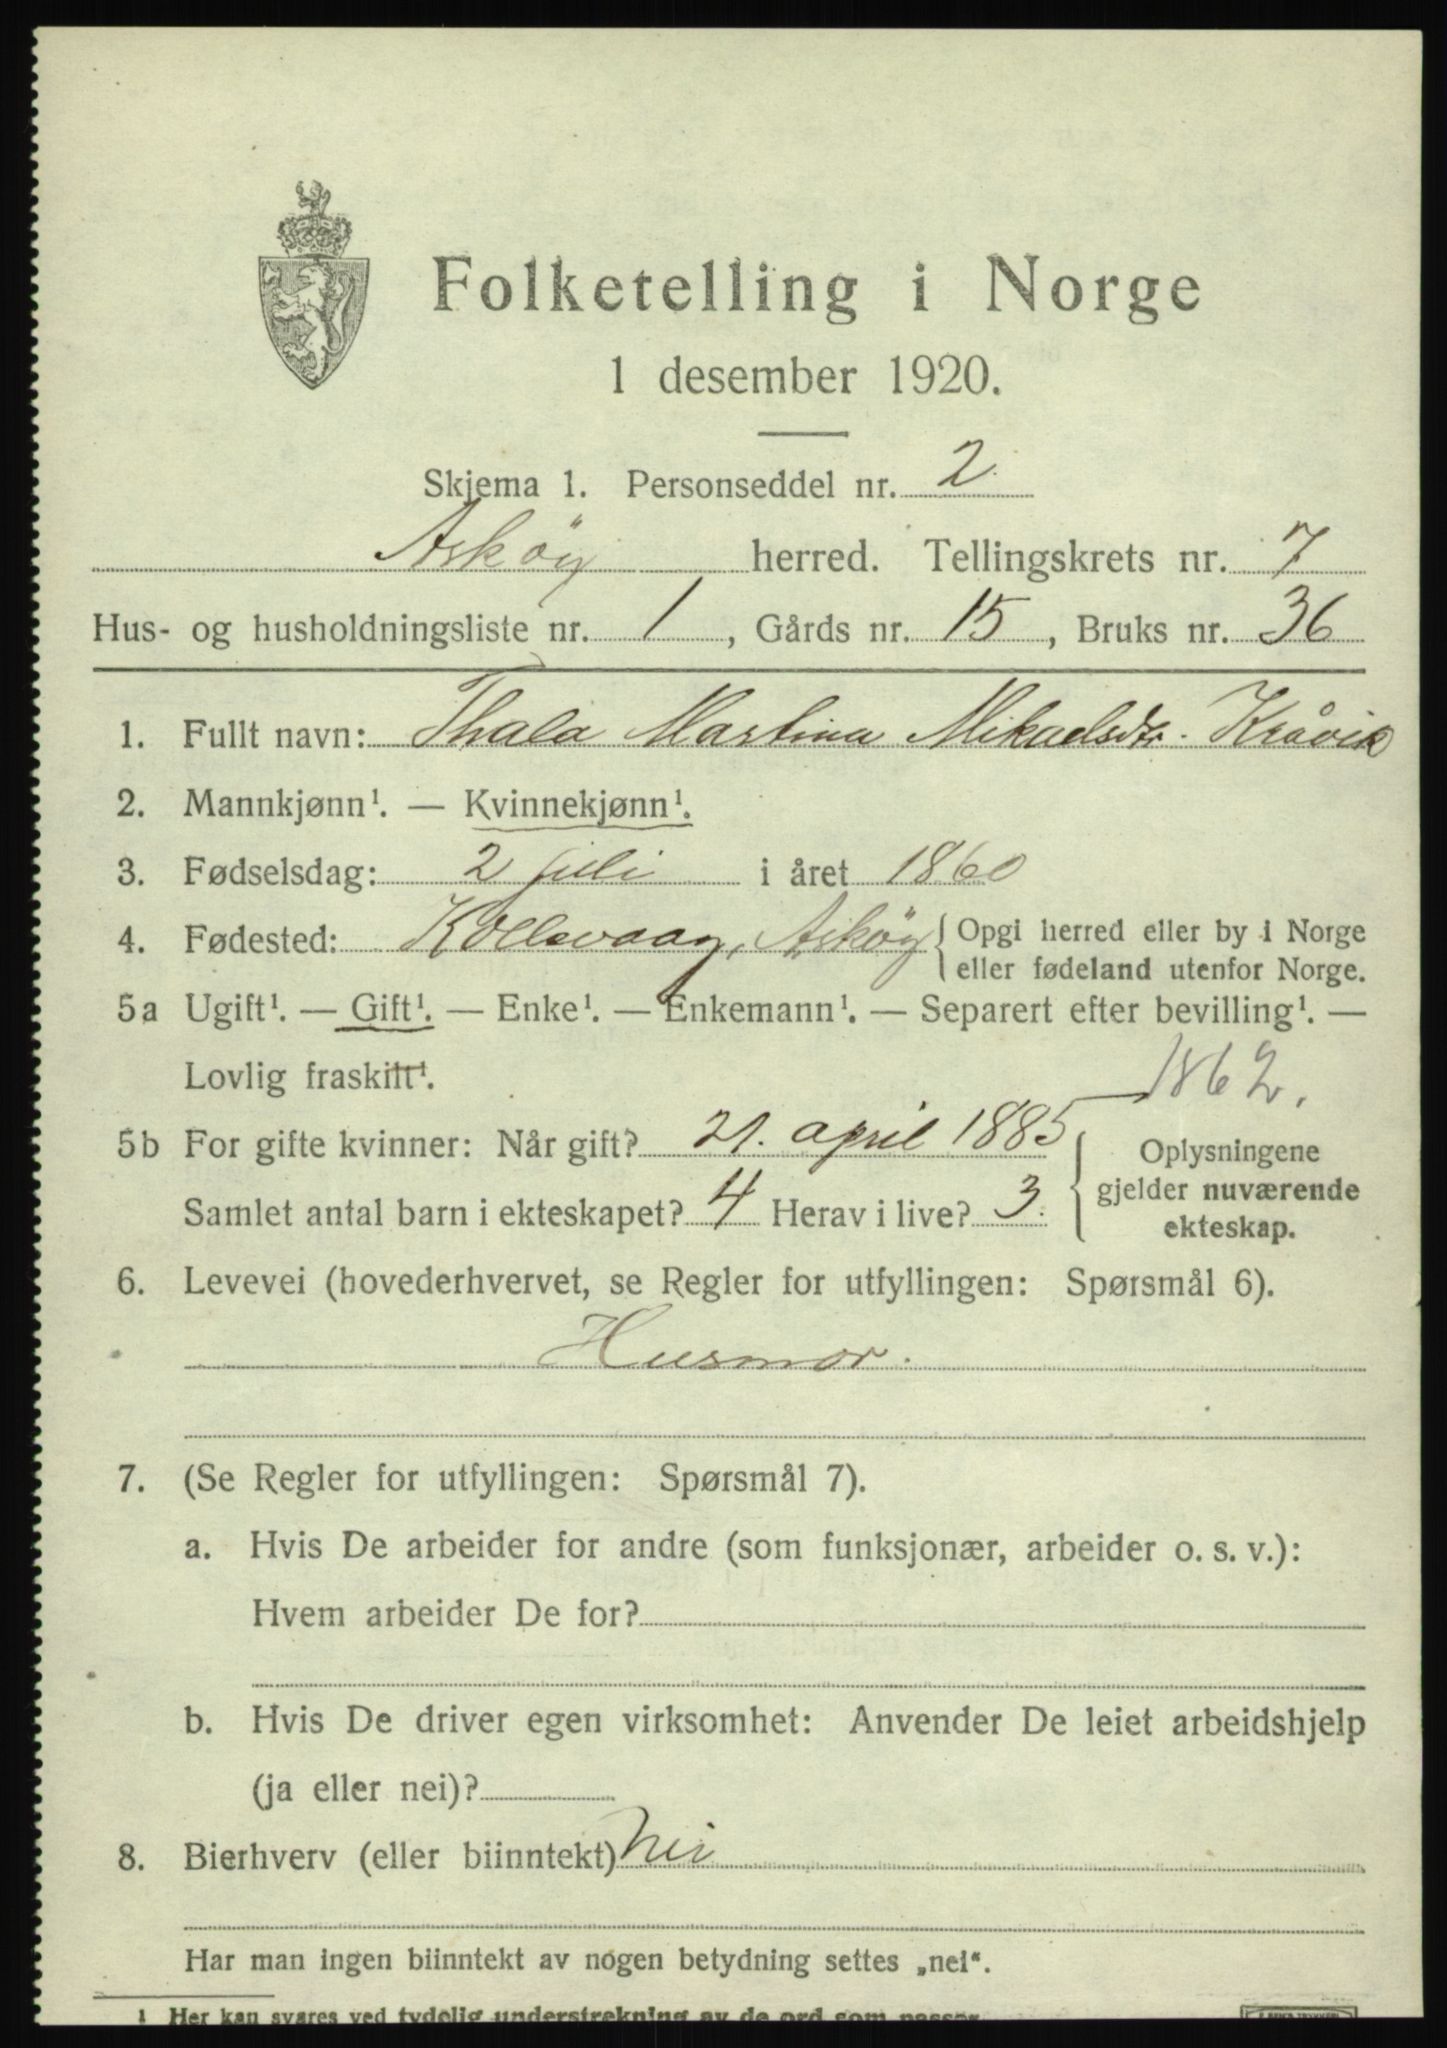 Folketelling i Norge
1 desember 1920.
Skjema 1. Personseddel nr. 2
Asköy herred. Tellingskrets nr. 7
Hus- og husholdningsliste nr. 1, Gårds nr. 15, Bruks nr. 36
1. Fullt navn: Thala Martina Mikaelsdtr. Kråvik
2. Mannkjønn¹. — Kvinnekjønn¹.
3. Fødselsdag: 2 juli i året 1860
4. Fødested: Kollevaag, Asköy { Opgi herred eller by i Norge
eller fødeland utenfor Norge.
5a Ugift¹. — Gift¹. — Enke¹. — Enkemann¹. — Separert efter bevilling¹. —
Lovlig fraskilt¹.
1862.
5b For gifte kvinner: Når gift? 21. april 1885
Samlet antal barn i ekteskapet? 4 Herav i live? 3.
Oplysningene
gjelder nuværende
ekteskap.
6. Levevei (hovederhvervet, se Regler for utfyllingen: Spørsmål 6).
Husmor.
7. (Se Regler for utfyllingen: Spørsmål 7).
a. Hvis De arbeider for andre (som funksjonær, arbeider o. s. v.):
Hvem arbeider De for?
b. Hvis De driver egen virksomhet: Anvender De leiet arbeidshjelp
(ja eller nei)?
8. Bierhverv (eller biinntekt) Nei
Har man ingen biinntekt av nogen betydning settes „nei“.
1 Her kan svares ved tydelig understrekning av de ord som passer.